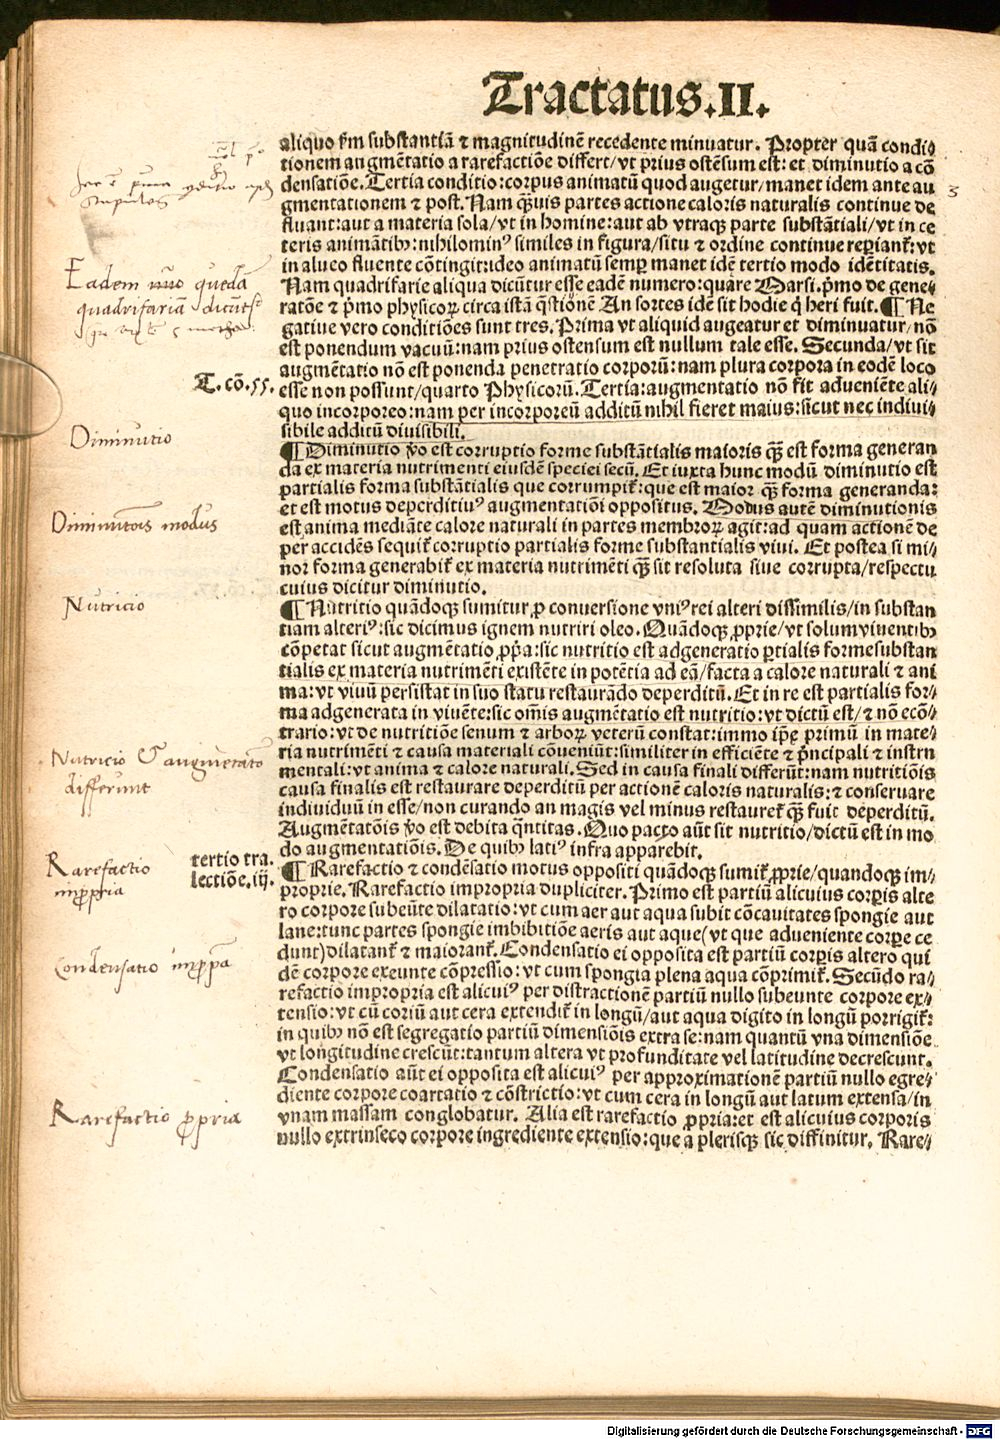 Tractatus.II.
aliquo ẜm substantiã ⁊ magnitudinẽ recedente minuatur. Propter quã condi⸗
tionem augmẽtatio a rarefactiõe differt/vt prius ostẽsum est: et diminutio a cõ
densatiõe. Tertia conditio: corpus animatũ quod augetur/manet idem ante au
gmentationem ⁊ post. Nam q̃uis partes actione caloris naturalis continue de
fluant: aut a materia sola/vt in homine: aut ab vtraqꝫ parte substãtiali/vt in ce
teris animãtibꝰ: nihilominꝰ similes in figura/situ ⁊ ordine continue reperiant᷑: vt
in alueo fluente cõtingit: ideo animatũ semp manet idẽ tertio modo idẽtitatis.
Nam quadrifarie aliqua dicũtur esse eadẽ numero: quare Marsi. p̃mo de gene⸗
ratõe ⁊ p̃mo physicoꝝ circa istã q̃stiõnẽ An sortes idẽ sit hodie q̇ heri fuit. ¶ Ne
gatiue vero conditiões sunt tres. Prima vt aliquid augeatur et diminuatur/nõ
est ponendum vacuũ: nam prius ostensum est nullum tale esse. Secunda/vt sit
augmẽtatio nõ est ponenda penetratio corporũ: nam plura corpora in eodẽ loco
T. cõ. 55. esse non possunt/quarto Physicorũ. Tertia: augmentatio nõ fit adueniẽte ali⸗
quo incorporeo: nam per incorporeũ additũ nihil fieret maius: sicut nec indiui⸗
sibile additũ diuisibili.
Diminutio
¶ Diminutio ṽo est corruptio forme substãtialis maioris q̃ est forma generan
da ex materia nutrimenti eiusdẽ speciei secũ. Et iuxta hunc modũ diminutio est
partialis forma substãtialis que corrumpit᷑: que est maior q̃ forma generanda:
et est motus deperditiuꝰ augmentatiõi oppositus. Modus autẽ diminutionis
Diminutõis modus
est anima mediãte calore naturali in partes membroꝝ agit: ad quam actionẽ de
per accidẽs sequit᷑ corruptio partialis forme substantialis viui. Et postea si mi⸗
nor forma generabit᷑ ex materia nutrimẽti q̃ sit resoluta siue corrupta/respectu
cuius dicitur diminutio.
Nutricio
¶ Nutritio quãdoqꝫ sumitur ꝓ conuersione vniꝰ rei alteri dissimilis/in substan
tiam alteriꝰ: sic dicimus ignem nutriri oleo. Quãdoqꝫ ꝓprie/vt solum viuentibꝰ
cõpetat sicut augmẽtatio ꝓp̃a: sic nutritio est adgeneratio ꝑtialis forme substan
tialis ex materia nutrimẽti existẽte in potẽtia ad eã/facta a calore naturali ⁊ ani
ma: vt viuũ persistat in suo statu restaurãdo deperditũ. Et in re est partialis for⸗
ma adgenerata in viuẽte: sic om̃is augmẽtatio est nutritio: vt dictũ est/⁊ nõ ecõ⸗
trario: vt de nutritiõe senum ⁊ arboꝝ veterũ constat: immo ip̃e primũ in mate⸗
Nutricio & augmẽtatio differunt
ria nutrimẽti ⁊ causa materiali cõueniũt: similiter in efficiẽte ⁊ p̃ncipali ⁊ instru
mentali: vt anima ⁊ calore naturali. Sed in causa finali differũt: nam nutritiõis
causa finalis est restaurare deperditũ per actionẽ caloris naturalis: ⁊ conseruare
indiuiduũ in esse/non curando an magis vel minus restauret᷑ q̃ fuit deperditũ.
Augmẽtatõis ṽo est debita q̃ntitas. Quo pacto aũt sit nutritio/dictũ est in mo
do augmentatiõis. De quibꝰ latiꝰ infra apparebit.
Rarefactio impropria
tertio tra.
lectiõe. iij.
¶ Rarefactio ⁊ condẽsatio motus oppositi quãdoqꝫ sumit᷑ ꝓprie/quandoqꝫ im⸗
proprie. Rarefactio impropria dupliciter. Primo est partiũ alicuius corꝑis alte
ro corpore subeũte dilatatio: vt cum aer aut aqua subit cõcauitates spongie aut
lane: tunc partes spongie imbibitiõe aeris aut aque (vt que adueniente corpe ce
Condensatio imp̃p̃a
dunt) dilatant᷑ ⁊ maiorant᷑. Condensatio ei opposita est partiũ corꝑis altero qui
dẽ corpore exeunte cõpressio: vt cum spongia plena aqua cõprimit᷑. Secũdo ra⸗
refactio impropria est alicuiꝰ per distractionẽ partiũ nullo subeunte corpore ex⸗
tensio: vt cũ coriũ aut cera extendit᷑ in longũ/aut aqua digito in longũ porrigit᷑:
in quibꝰ nõ est segregatio partiũ dimensiõis extra se: nam quantũ vna dimensiõe
vt longitudine crescũt: tantum altera vt profunditate vel latitudine decrescunt.
Condensatio aũt ei opposita est alicuiꝰ per approximationẽ partiũ nullo egre⸗
diente corpore coartatio ⁊ cõstrictio: vt cum cera in longũ aut latum extensa/in
Rarefactio ꝓpria
vnam massam conglobatur. Alia est rarefactio ꝓpria: et est alicuius corporis
nullo extrinseco corpore ingrediente extensio: que a plerisqꝫ sic diffinitur. Rare⸗
Digitalisierung gefördert durch die Deutsche Forschungsgemeinschaft - DFG